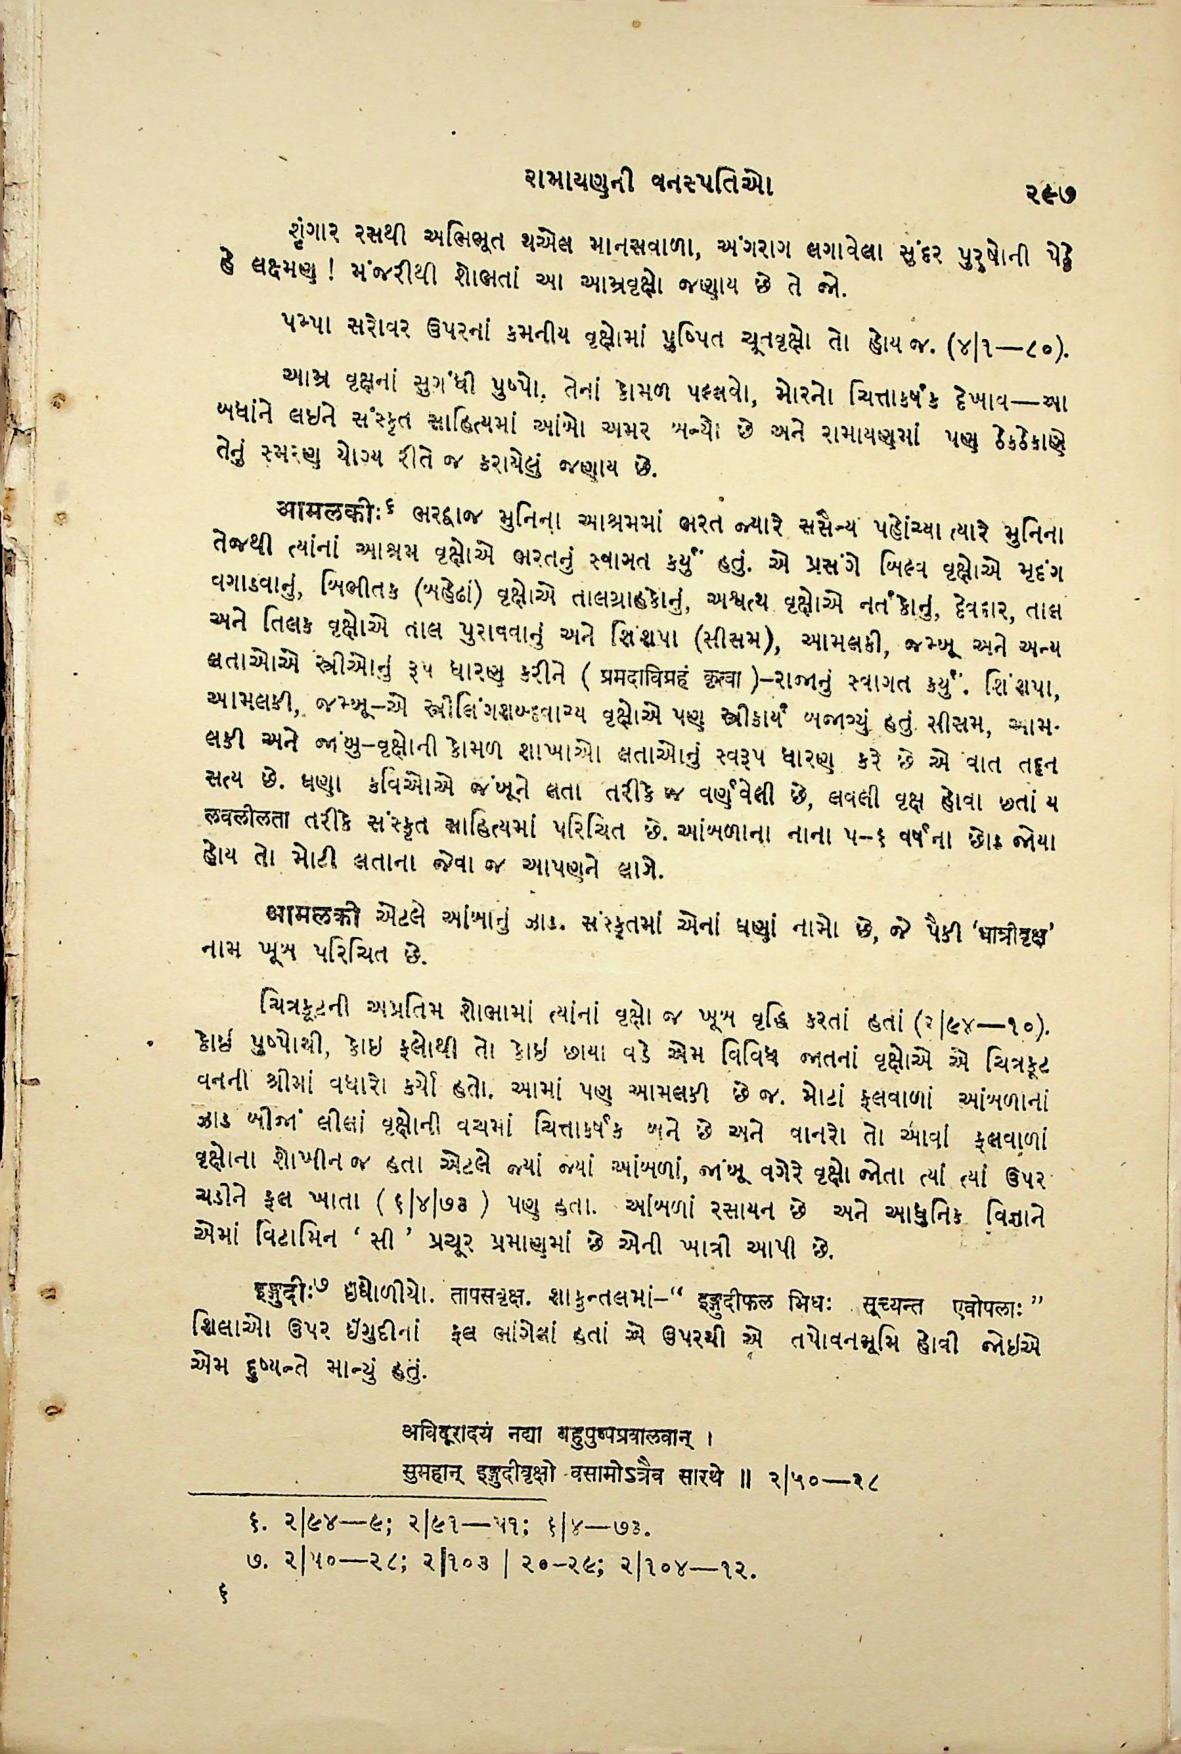 રામાયણની વનસ્પતિઓ
૨૯૭
શૃંગાર રસથી અભિભૂત થએલ માનસવાળા, અંગરાગ લગાવેલા સુંદર પુરુષોની પેઠે
હે લક્ષ્મણ ! મંજરીથી શોભતાં આ આમ્રવૃક્ષો જણાય છે તે જો.
પમ્પા સરોવર ઉપરનાં કમનીય વૃક્ષોમાં પુષ્પિત ચૂતવૃક્ષો તો હોય જ. (૪|૧—૮૦).
આમ્ર વૃક્ષનાં સુગંધી પુષ્પો, તેનાં કોમળ પલ્લવો, મોરનો ચિત્તાકર્ષક દેખાવ—આ
બધાંને લઇને સંસ્કૃત સાહિત્યમાં આંબો અમર બન્યો છે અને રામાયણમાં પણ ઠેકઠેકાણે
તેનું સ્મરણ યોગ્ય રીતે જ કરાયેલું જણાય છે.
आमलकीः૬ ભરદ્વાજ મુનિના આશ્રમમાં ભરત જ્યારે સસૈન્ય પહોંચ્યા ત્યારે મુનિના
તેજથી ત્યાંનાં આશ્રમ વૃક્ષોએ ભરતનું સ્વાગત કર્યું હતું. એ પ્રસંગે બિલ્વ વૃક્ષોએ મૃદંગ
વગાડવાનું, બિભીતક (બહેઢાં) વૃક્ષોએ તાલગ્રાહકોનું, અશ્વત્થ વૃક્ષોએ નર્તકોનું, દેવદાર, તાલ
અને તિલક વૃક્ષોએ તાલ પુરાવવાનું અને શિંશપા (સીસમ), આમલકી, જમ્બૂ અને અન્ય
લતાઓએ સ્ત્રીઓનું રૂપ ધારણ કરીને ( प्रमदाविग्रहं कृत्वा )–રાજાનું સ્વાગત કર્યું. શિંશપા,
આમલકી, જમ્બૂ–એ સ્ત્રીલિંગશબ્દવાચ્ય વૃક્ષોએ પણ સ્ત્રીકાર્ય બજાવ્યું હતું સીસમ, આમ-
લકી અને જાંબુ–વૃક્ષોની કોમળ શાખાઓ લતાઓનું સ્વરૂપ ધારણ કરે છે એ વાત તદ્દન
સત્ય છે. ઘણા કવિઓએ જંબૂને લતા તરીકે જ વર્ણવેલી છે, લવલી વૃક્ષ હોવા છતાં ય
लवलीलता તરીકે સંસ્કૃત સાહિત્યમાં પરિચિત છે. આંબળાના નાના ૫–૬ વર્ષના છોડ જોયા
હોય તો મોટી લતાના જેવા જ આપણને લાગે.
आमलकी એટલે આંબાનું ઝાડ. સંસ્કૃતમાં એનાં ઘણાં નામો છે, જે પૈકી ‘धात्रीवृक्ष’
નામ ખૂબ પરિચિત છે.
ચિત્રકૂટની અપ્રતિમ શોભામાં ત્યાંનાં વૃક્ષો જ ખૂબ વૃદ્ધિ કરતાં હતાં (૨|૯૪—૧૦).
કોઇ પુષ્પોથી, કોઇ ફલોથી તો કોઇ છાયા વડે એમ વિવિધ જાતનાં વૃક્ષોએ એ ચિત્રકૂટ
વનની શ્રીમાં વધારો કર્યો હતો. આમાં પણ આમલકી છે જ. મોટાં ફલવાળાં આંબળાનાં
ઝાડ બીજાં લીલાં વૃક્ષોની વચમાં ચિત્તાકર્ષક બને છે અને વાનરો તો આવાં ફલવાળાં
વૃક્ષોના શોખીન જ હતા એટલે જ્યાં જ્યાં આંબળાં, જાંબૂ વગેરે વૃક્ષો જોતા ત્યાં ત્યાં ઉપર
ચડીને ફલ ખાતા ( ૬|૪|૭૩ ) પણ હતા. આંબળાં રસાયન છે અને આધુનિક વિજ્ઞાને
એમાં વિટામિન ‘ સી ’ પ્રચૂર પ્રમાણમાં છે એની ખાત્રી આપી છે.
इङ्गुदीः૭ ઇંઘોળીયો. तापसवृक्ष. શાકુન્તલમાં–“ इङ्गुदीफल भिधः सूच्यन्त एवोपलाः ”
શિલાઓ ઉપર ઈંગુદીનાં ફલ ભાંગેલાં હતાં એ ઉપરથી એ તપોવનભૂમિ હોવી જોઇએ
એમ દુષ્યન્તે માન્યું હતું.
अविदूरादयं नद्या बहुपुष्पप्रवालवान् ।
सुमहान् इङ्गुदीवृक्षो वसामोऽत्रैव सारथे ॥ ૨|૫૦—૨૮
૬. ૨|૯૪—૯; ૨|૯૧—૫૧; ૬|૪—૭૩.
૭. ૨|૫૦—૨૮; ૨|૧૦૩ | ૨૦–૨૯; ૨|૧૦૪—૧૨.
૬